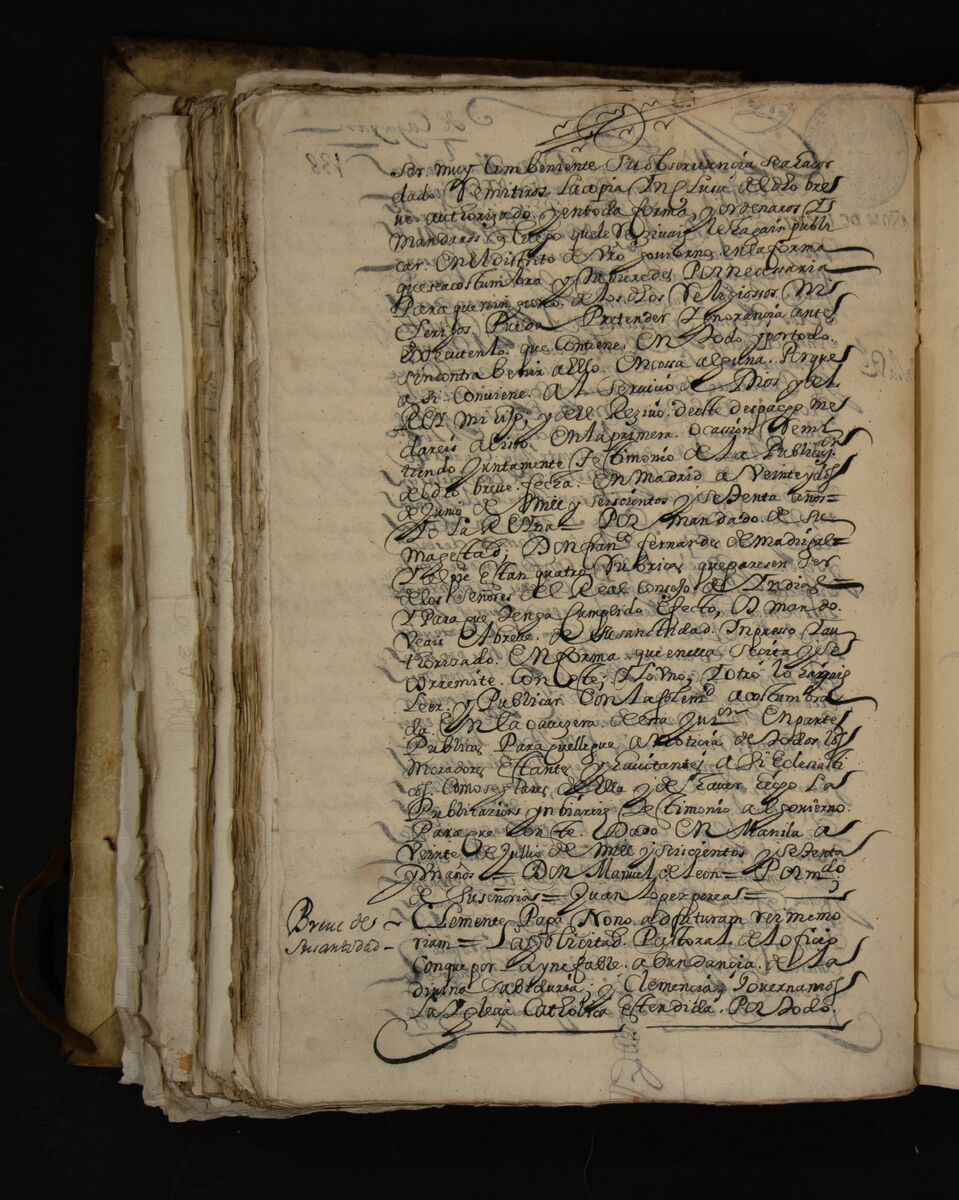 Ser muy combeniente Su obseruancia sea acor
dado Remitiros la copia Inclusa del dho bre
ue authorizado, y en toda forma, y ordenaros
mandaros q luego que le Reziuais le hagais publi
car. en el distrito de Vro gouierno en la forma
que se acostumbra y Hubieredes Por necessaria
Para que ninguno de los dhos Religiossos Ni
Clerigos Pueda Pretender Ignorancia antes
executen lo que Contiene, en todo y por todo.
Sin contra benir a ello. en cossa alguna Porque
a Si Conuiene al Seruicio de Dios y del
Rey mi hijo, y del Reziuo deeste despacho me
dareis abiso. en la primera ocassion Remi
tiendo Juntamente testimonio de la Publicaon
del dho breue. fecha en Madrid a Veinte y dos
de Junio de Mill y seiscientos y setenta años=
Yo la Reyna = Por mandado de Su
Magestad; Don franco fernandes de madrigal=
Y al pie estan quatro Rubricas que paresen Ser
de los Señores del Real Consejo de Indias =
Y Para que tenga Cumplido efecto, mando.
Veais el breue de Su Santidad. Inpresso y au
thorizado. en forma que en ella Secita y se
os rremite. con este; y lo vno; y otro lo hagais
Leer y Publicar con la solemd acostumbra
da en la cauezera de esa Jurion en parte
Publica Para que llegue a Noticia de todos los
Moradores Estantes y hauitantes a Si Eclesiasti
cos, Como seglares de ella y de hauer hecho La
Publicazion ynbiareis testimonio al gouierno
Para que conste. Dado en Manila a
Veinte de Jullio de Mill y seiscientos y setenta
y años = Don Manuel de leon = Por mdo
de Su señoria = Juan lopez pereas =
Breue de
Su santidad –
Clemente Papa Nono ad futuram rei memo
riam = La Solicitud Pastoral del oficio
Con que por la ynefable abundancia de la
diuina Sabiduria y Clemencia, Gouernamos
La Yglecia Catholica estendida Por todo.